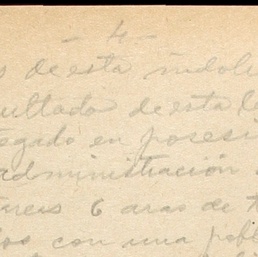 - 4 -
s de esta indole
sultado de esta le
egado en posesi
administración
areas 6 aras de t
os con una pobl